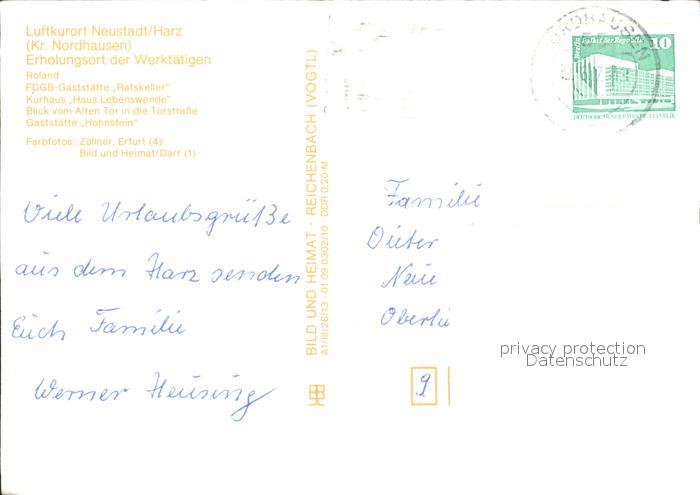 Luftkurort Neustadt/Harz
(Kr. Nordhausen)
Erholungsort der Werktätigen
Roland
FDGB-Gaststätte „Ratskeller“
Kurhaus „Haus Lebenswende“
Blick vom Alten Tor in die Torstraße
Gaststätte „Hohnstein“
Farbfotos: Zöllner, Erfurt (4)
Bild und Heimat/Darr (1)
Viele Urlaubsgrüße
aus dem Harz senden
Euch Familie
Werner Heusing
BILD UND HEIMAT · REICHENBACH (VOGTL)
A1/III/26/13 · 01 09 0302/10 · DDR 0,20 M
NORDHAUSEN
55
Berlin Palast der Republik 10
DEUTSCHE DEMOKRATISCHE REPUBLIK
Familie
Dieter
Neue
Oberlie
privacy protection
Datenschutz
9